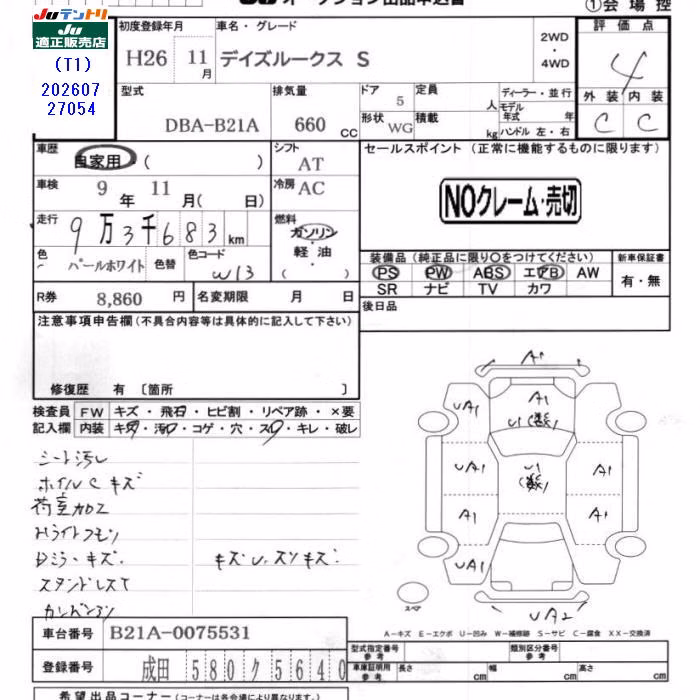 Juテントリ
Ju適正販売店
(T1)
202607
27054
①会場控
初度登録年月 車名・グレード 2WD・4WD 評価点
H26 11月 デイズルークス S 4
型式 排気量 ドア 定員 ディーラー・並行
DBA-B21A 660 CC 5 人 モデル年式 年
形状 WG 積載 kg ハンドル 左・右
外装 内装
C C
車歴 自家用 ( ) シフト AT
車検 9年 11月( 日) 冷房 AC
走行 9万3千683km 燃料 ガソリン・軽油 ( )
色 パールホワイト 色替 色コード W13
R券 8,860 円 名変期限 月 日
セールスポイント (正常に機能するものに限ります)
NOクレーム・売切
装備品 (純正品に限り〇をつけてください) 新車保証書
PS PW ABS エアB AW 有・無
SR ナビ TV カワ
後日品
注意事項申告欄 (不具合内容等は具体的に記入して下さい)
修復歴 有 〔箇所 〕
検査員記入欄 FW キズ・飛石・ヒビ割・リペア跡・×要
内装 キズ・汚れ・コゲ・穴・スレ・キレ・破レ
シート汚レ
ホイルCキズ
荷室加工
Dミラーキズ.
A1
UA1 A1
U1
UA1 U1 A1
A1 A1
UA1
スペア UA2
A-キズ E-エクボ U-凹み W-補修跡 S-サビ C-腐食 XX-交換済
車台番号 B21A-0075531
登録番号 成田 580 ク 5640
型式指定番号 参考 類別区分番号 参考
車庫証明用 参考 長さ cm 幅 cm 高さ cm
希望出品コーナー (コーナーは各会場により異なります。)